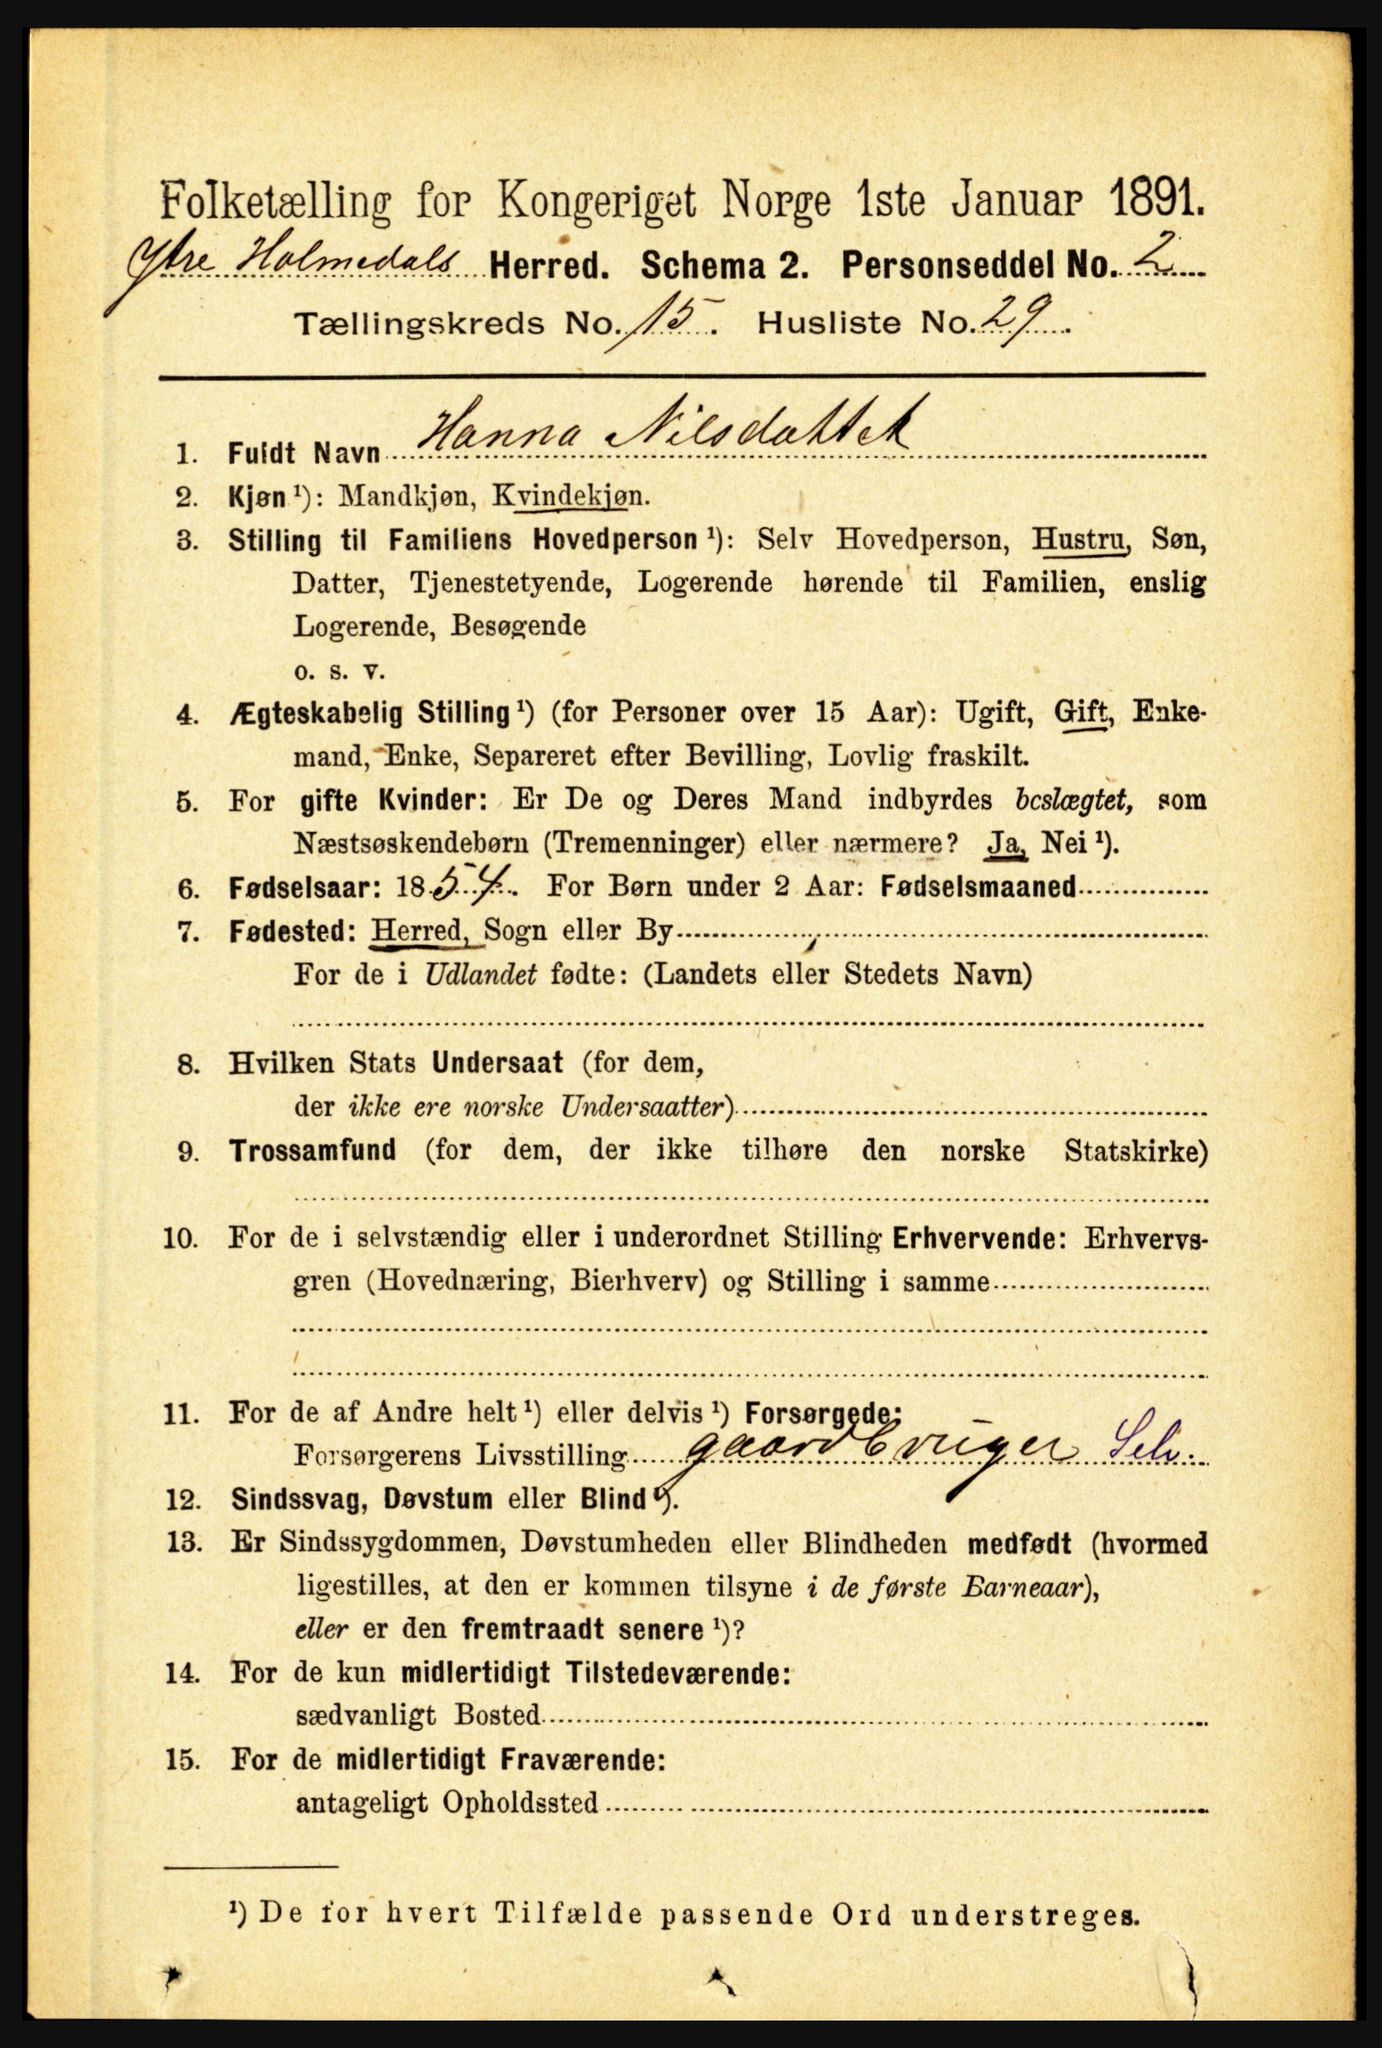 Folketælling for Kongeriget Norge 1ste Januar 1891.
Ytre Holmedals Herred. Schema 2. Personseddel No. 2
Tællingskreds No. 15. Husliste No. 29.
1. Fuldt Navn Hanna Nilsdatter
2. Kjøn ¹): Mandkjøn, Kvindekjøn.
3. Stilling til Familiens Hovedperson ¹): Selv Hovedperson, Hustru, Søn,
Datter, Tjenestetyende, Logerende hørende til Familien, enslig
Logerende, Besøgende
o. s. v.
4. Ægteskabelig Stilling ¹) (for Personer over 15 Aar): Ugift, Gift, Enke-
mand, Enke, Separeret efter Bevilling, Lovlig fraskilt.
5. For gifte Kvinder: Er De og Deres Mand indbyrdes beslægtet, som
Næstsøskendebørn (Tremenninger) eller nærmere? Ja, Nei ¹).
6. Fødselsaar: 1854. For Børn under 2 Aar: Fødselsmaaned
7. Fødested: Herred, Sogn eller By
For de i Udlandet fødte: (Landets eller Stedets Navn)
8. Hvilken Stats Undersaat (for dem,
der ikke ere norske Undersaatter)
9. Trossamfund (for dem, der ikke tilhøre den norske Statskirke)
10. For de i selvstændig eller i underordnet Stilling Erhvervende: Erhvervs-
gren (Hovednæring, Bierhverv) og Stilling i samme
11. For de af Andre helt ¹) eller delvis ¹) Forsørgede:
Forsørgerens Livsstilling gaardbruger Selv.
12. Sindssvag, Døvstum eller Blind ¹).
13. Er Sindssygdommen, Døvstumheden eller Blindheden medfødt (hvormed
ligestilles, at den er kommen tilsyne i de første Barneaar),
eller er den fremtraadt senere ¹)?
14. For de kun midlertidigt Tilstedeværende:
sædvanligt Bosted
15. For de midlertidigt Fraværende:
antageligt Opholdssted
¹) De for hvert Tilfælde passende Ord understreges.